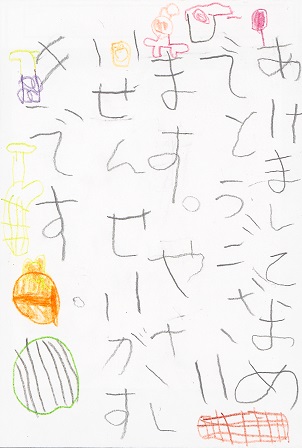 あけましておめ
でとうござい
ます。やさし
いぜんせいがす
きです。